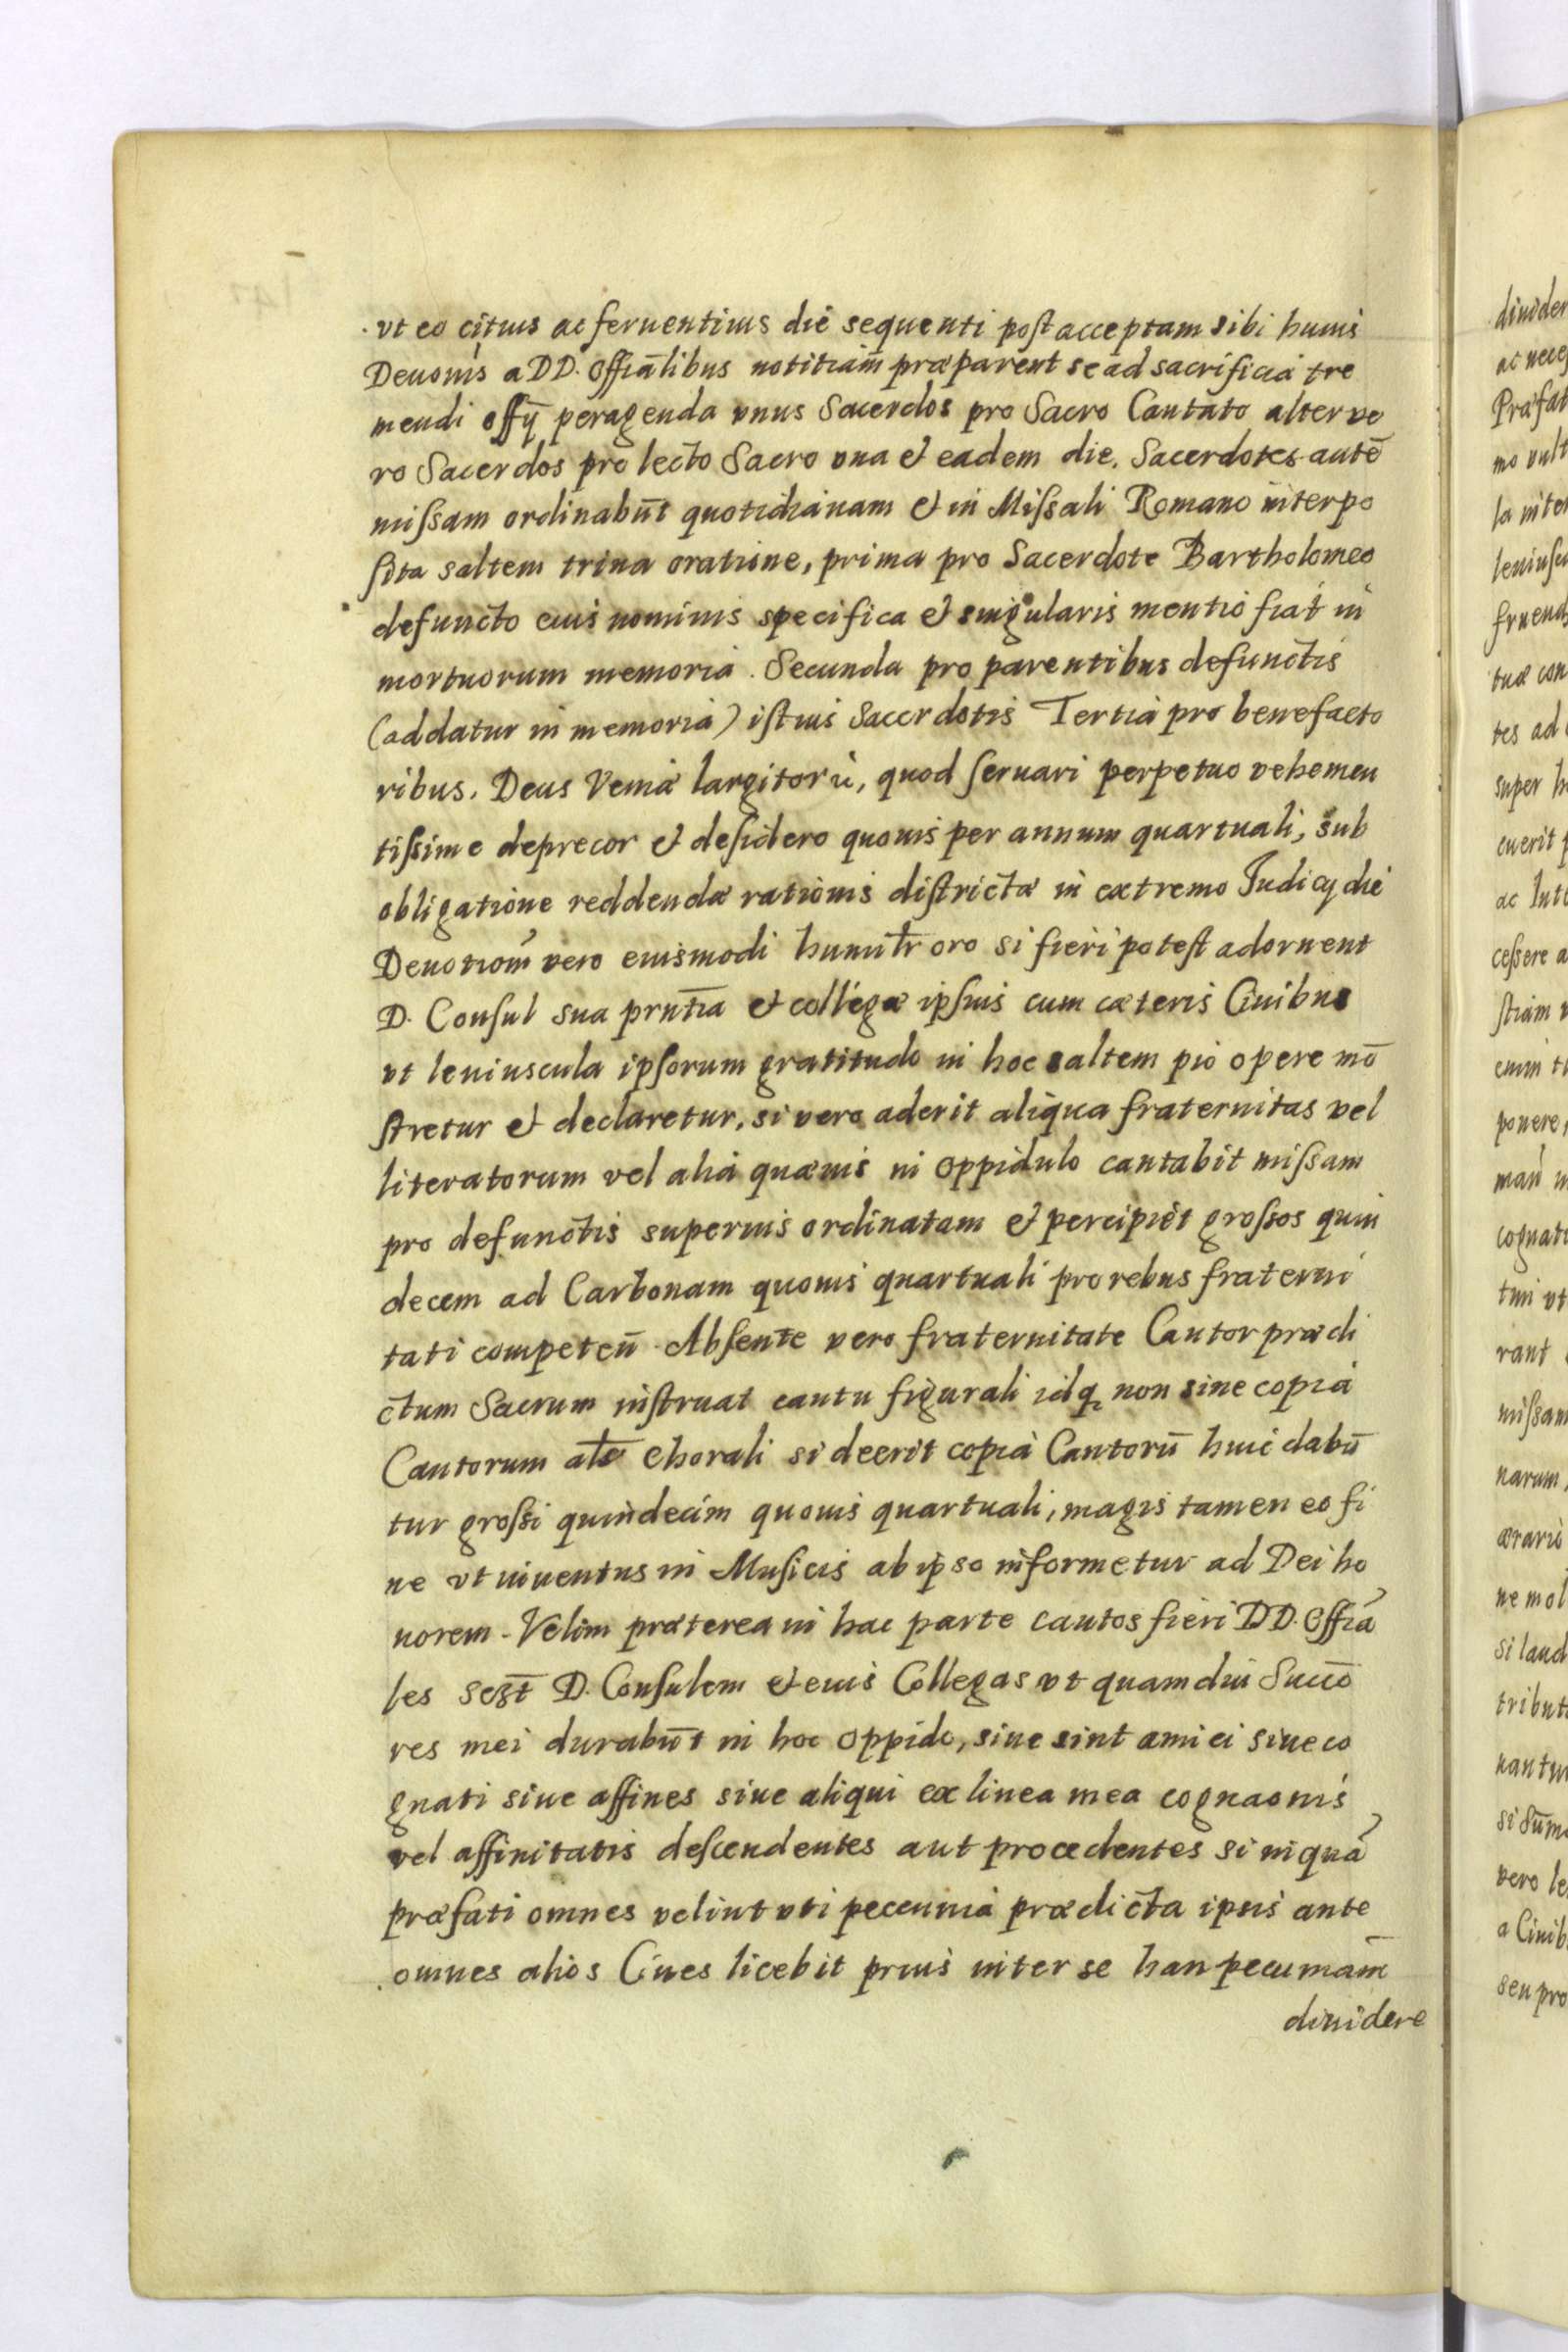 vt eo citius ac feruentius die sequenti post acceptam sibi huius
Deuonis a DD. Offiālibus notitiam̄ præparent se ad sacrificia tre
mendi offÿ peragenda vnus Sacerdos pro Sacro Cantato alter ve
ro Sacerdos pro lecto Sacro vna et eadem die. Sacerdotes autē
missam ordinabūt quotidianam et in Missali Romano interpo
sita saltem trina oratione, prima pro Sacerdote Bartholomeo
defuncto cuius nominis specifica et singularis mentio fiat in
mortuorum memoria. Secunda pro parentibus defunctis
(addatur in memoria) istius Sacerdotis Tertia pro benefacto
ribus. Deus Veniæ largitor ù, quod seruari perpetuo vehemen
tissime deprecor et desidero quouis per annum quartuali, sub
obligatione reddendæ rationis districtæ in extremo Iudicÿ die
Deuotiom̄ vero eiusmodi humil̄r oro si fieri potest adornent
D. Consul sua prnt̄ia et collegæ ipsius cum cæteris Ciuibus
vt leniuscula ipsorum gratitudo in hoc saltem pio opere mō
stretur et declaretur, si vero aderit aliqua fraternitas vel
literatorum vel alia quæuis in oppidulo cantabit missam
pro defunctis superius ordinatam et percipiet grossos quin
decem ad Carbonam quouis quartuali pro rebus fraterni
tati competeñ. Absente vero fraternitate Cantor prædi
ctum Sacrum instruat cantu figurali idq, non sine copia
Cantorum al̄r Chorali si deerit copia Cantorū huic dabū
tur grossi quindecim quouis quartuali, magis tamen eo fi
ne vt iuuentus in Musicis ab ipso informetur ad Dei ho
norem. Velim præterea in hac parte cautos fieri DD. Offiā
les sczt̄ D. Consulem et eius Collegas vt quamdiu Succō
res mei durabūt in hoc oppido, siue sint amici siue co
gnati siue affines siue aliqui ex linea mea cognaonis
vel affinitatis descendentes aut procedentes si inquā
præfati omnes velint vti peccunia prædicta ipsis ante
omnes alios Ciues licebit prius inter se han pecuniam̄
diuidere